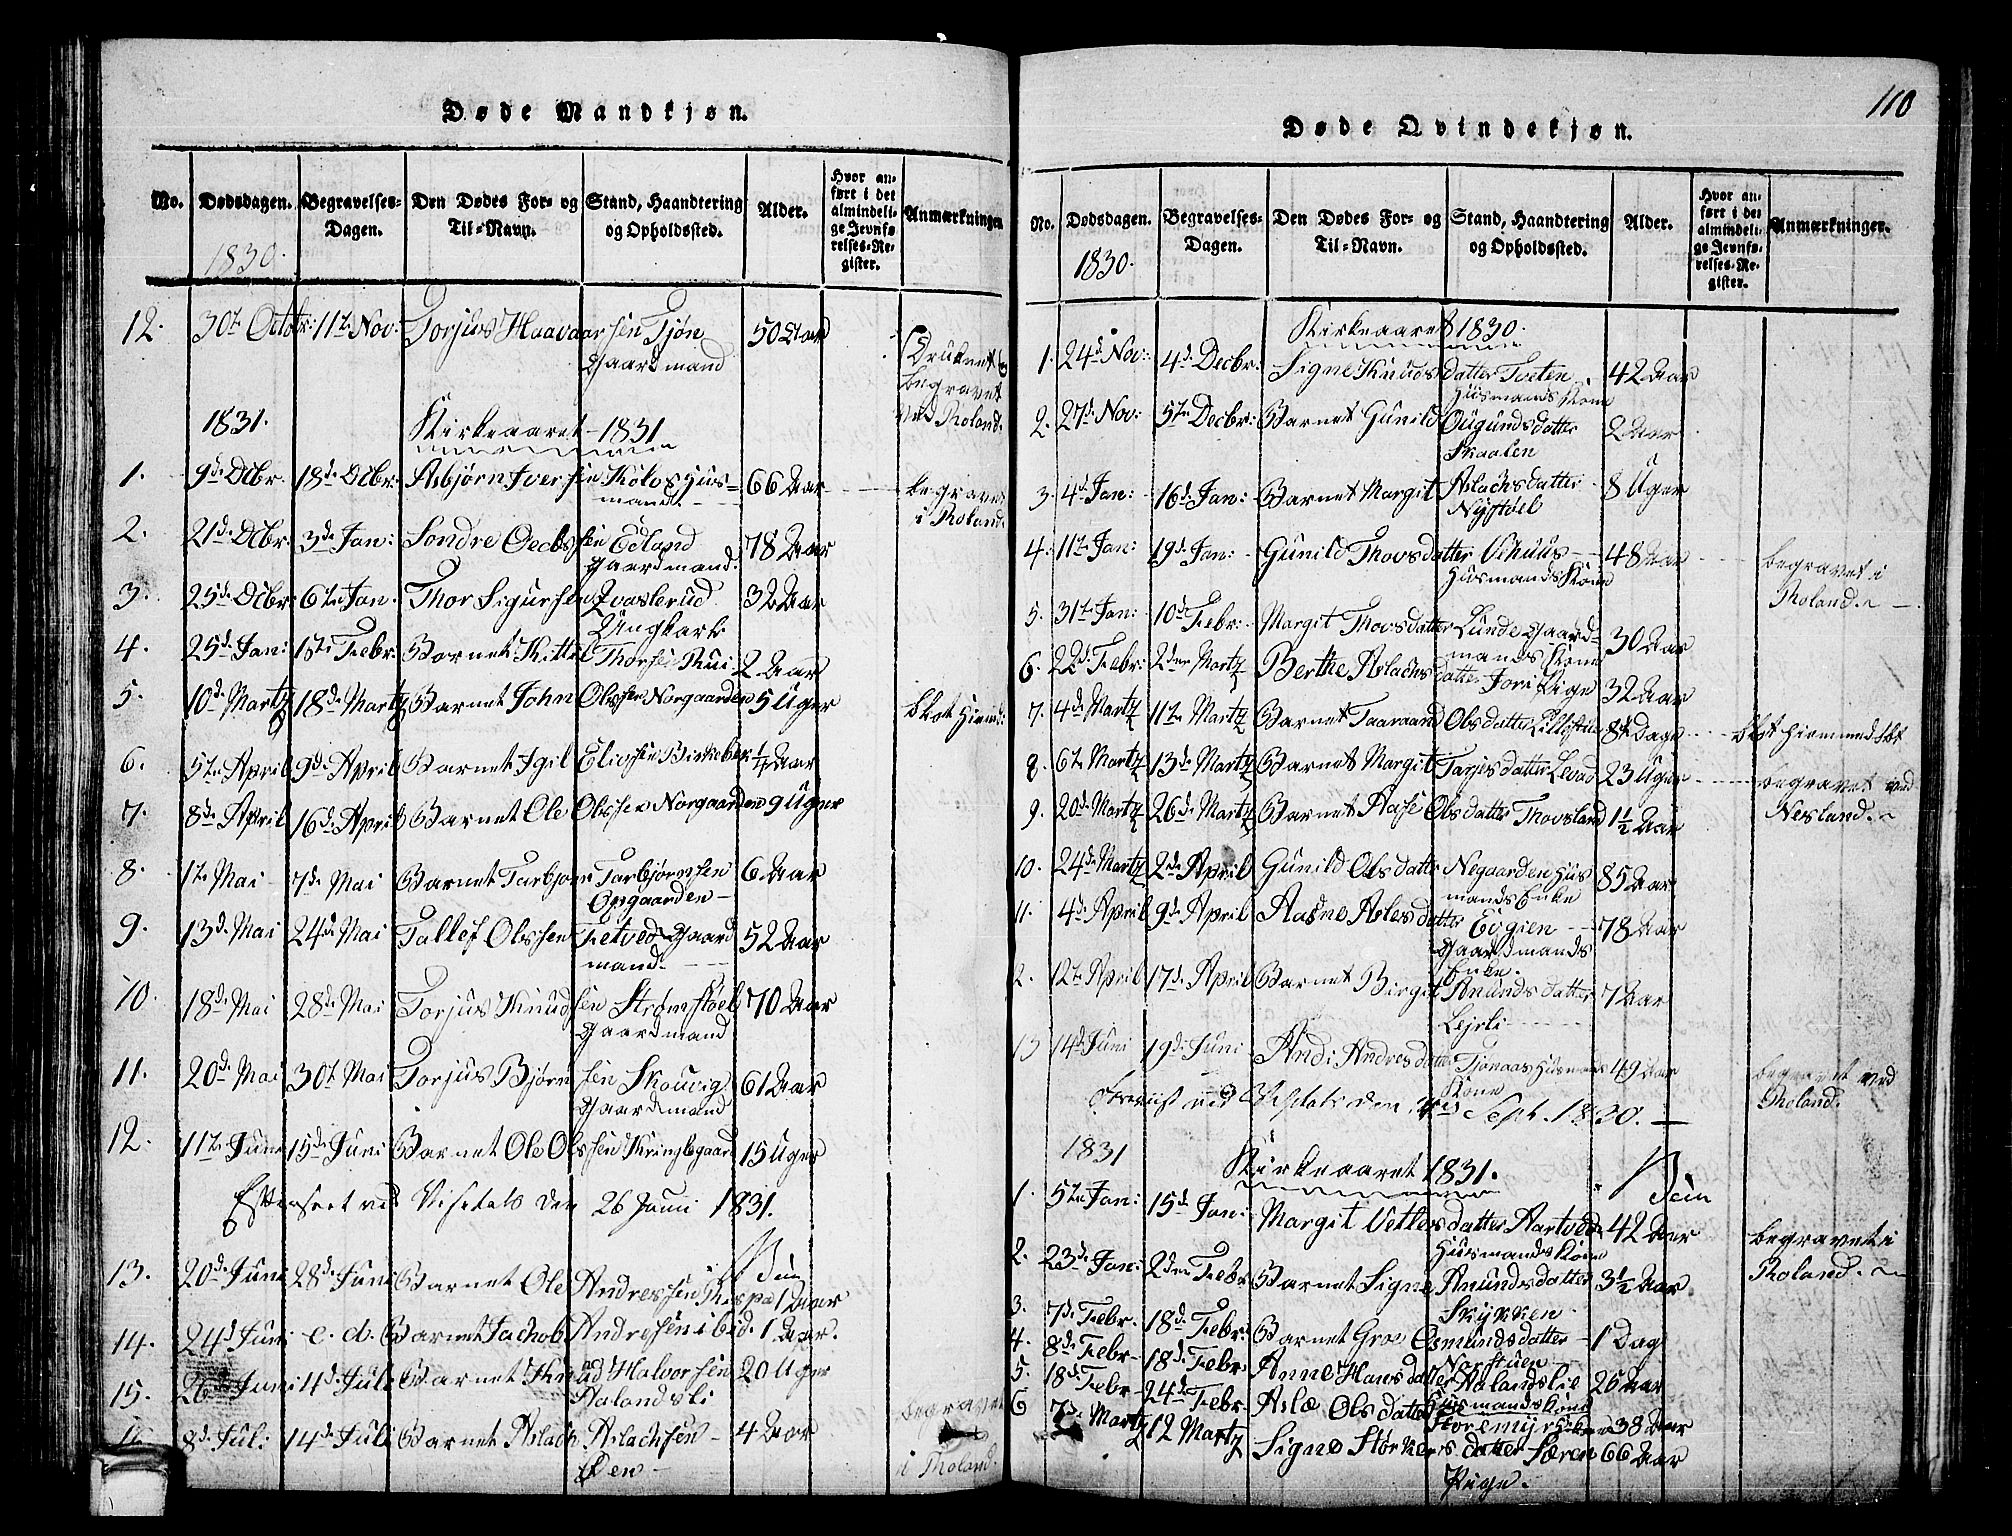 Døde Mandkjøn.
No. Dødsdagen. Begravelses-Dagen. Den Dødes For- og Til-Navn. Stand, Haandtering og Opholdssted. Alder. Hvor anført i det almindelige Jevnførelses-Register. Anmærkninger.
1830.
12. 30t Octobr: 11t Nov: Torjus Haavaarsen Tjøn 50 Aar Druknet &
Gaardmand begravet
ved Roland.
1831. Kirkeaaret 1831
1. 9d Dcbr. 18d Dcbr: Asbjørn Iversen Kolos Huus= 66 Aar begravet
mand. i Roland.
2. 21d Dcbr: 3d Jan: Sondre Oechsen Edland 78 Aar
Gaardmand.
3. 25d Dcbr: 6te Jan. Thor Sigursen Qvaslerud 32 Aar
Ungkarl
4. 25d Jan: 1ste Febr: Barnet Kittel Thorsen Rui 2 Aar
5. 10d Martz 18d Martz Barnet John Olssen Norgaarden 5 Uger
6. 5te April 9d April Barnet Igil Eliosen Birkebek ¼ Aar
7. 8d April 16d April Barnet Ole Olssen Norgaarden 9 Uger
8. 1te Mai 7d Mai Barnet Tarbjørn Tarbjørnsen 6 Aar
Opgaarden
9. 13d Mai 24d Mai Tallef Olssen Tetved Gaard 52 Aar
mand.
10. 18d Mai 28d Mai Torjus Knudsen Strømstøel 70 Aar
Gaardmand
11. 20d Mai 30t Mai Torjus Bjørnsen Skouvig 61 Aar
Gaardmand
12. 11te Juni 15d Juni Barnet Ole Olssen Kringlegaard 15 Uger
Efterseet ved Visetats den 26 Juni 1831.
13. 20d Juni 28d Juni Barnet Ole Andressen 1 Aar
14. 24d Juni e. d. Barnet Jachob Andresen ibid. 1 Aar.
15. 26d Juni 4d Juli Barnet Knud Halvorsen 20 Uger
Aalandsli
8d Juli 14d Juli Barnet Aslach Aslachsen 4 Aar begravet
i Roland.
110
Døde Qvindekjøn.
No. Dødsdagen. Begravelses-Dagen. Den Dødes For- og Til-Navn. Stand, Haandtering og Opholdssted. Alder. Hvor anført i det almindelige Jevnførelses-Register. Anmærkninger.
1830.
Kirkeaaret 1830.
1. 24d Nov: 4d Decbr: Signe Knudsdatter Tveten 42 Aar
Huusmands Kone
2. 27d Nov: 5te Decbr: Barnet Gunild Ougundsdatter 2 Aar
Skaalen
3. 4d Jan: 16d Jan: Barnet Margit Aslachsdatter 8 Uger
Nystøel
4. 11te Jan: 19d Jan: Gunild Thovsdatter Vehuus 48 Aar begravet i
Huusmands Kone Roland.
5. 31te Jan: 10d Febr: Margit Thovsdatter Lunde Gaard= 30 Aar
mands Kone
6. 22d Febr: 2den Martz Berthe Aslachsdatter Jori Pige 32 Aar
7. 4d Martz 11te Martz Barnet Taaraand Olsdatter 8te Dage
8. 6te Martz 13d Martz Barnet Margit Tarjesdatter Levad 23 Uger begravet ved
9. 20d Martz 26d Martz Barnet Aase Olsdatter Thovsland 1½ Aar Nesland.
10. 24d Martz 2d April Gunild Olsdatter Negaarden Huus 85 Aar
mands Enke
11. 4d April 9d April Aasne Aslesdatter Eigien 78 Aar
Gaardmands
Enke.
2. 12te April 17d April Barnet Birgit Anundsdatter 7 Aar
Lejrli
13 14d Juni 19d Juni Andi Andresdatter Tjønaas Huusmands 49 Aar begravet ved
Kone Roland.
ved Visetats den Sept. 1830.
1831 Kirkeaaret 1831.
1. 5te Jan: 15d Jan: Margit Vetlesdatter Aartved 42 Aar begravet i
Huusmands Kone Roland.
2. 23d Jan: 2den Febr Barnet Signe Anundsdatter 3½ Aar
Skykken
3. 7d Febr. 18d Febr: Barnet Groe Osmundsdatter 1 Dag
Norstuen
4. 8d Febr 18d Febr Anne Hansdatter Aalandslie 26 Aar
Huusmandskone
5. 18d Febr 24d Febr Aslæ Olsdatter Storemyr 38 Aar
6 7d Martz 12 Martz Signe Størkersdatter Særen 66 Aar
Pige.